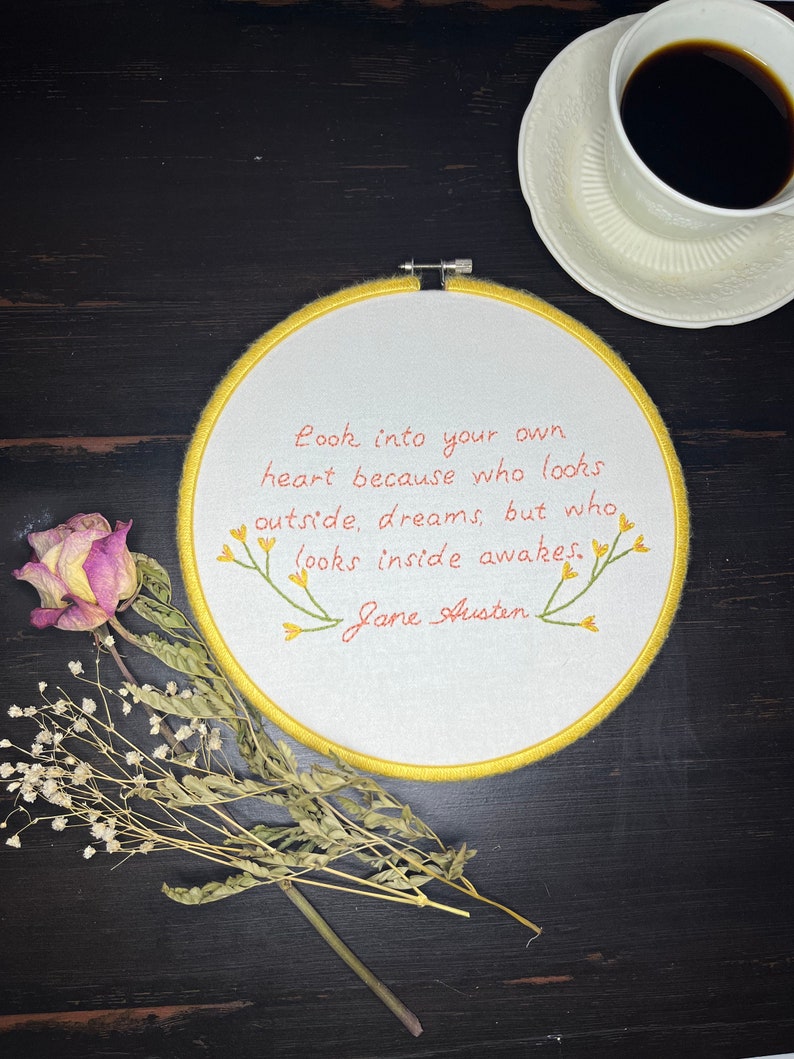 Look into your own
heart because who looks
outside, dreams, but who
looks inside awakes.
Jane Austen